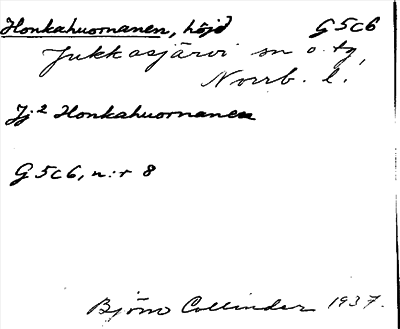 Honkahuornanen, höjd G5c6
Jukkasjärvi sn o. tg,
Norrb. l.
Jj² Honkahuornanen
G5c6, n:r 8
Björn Collinder 1937.